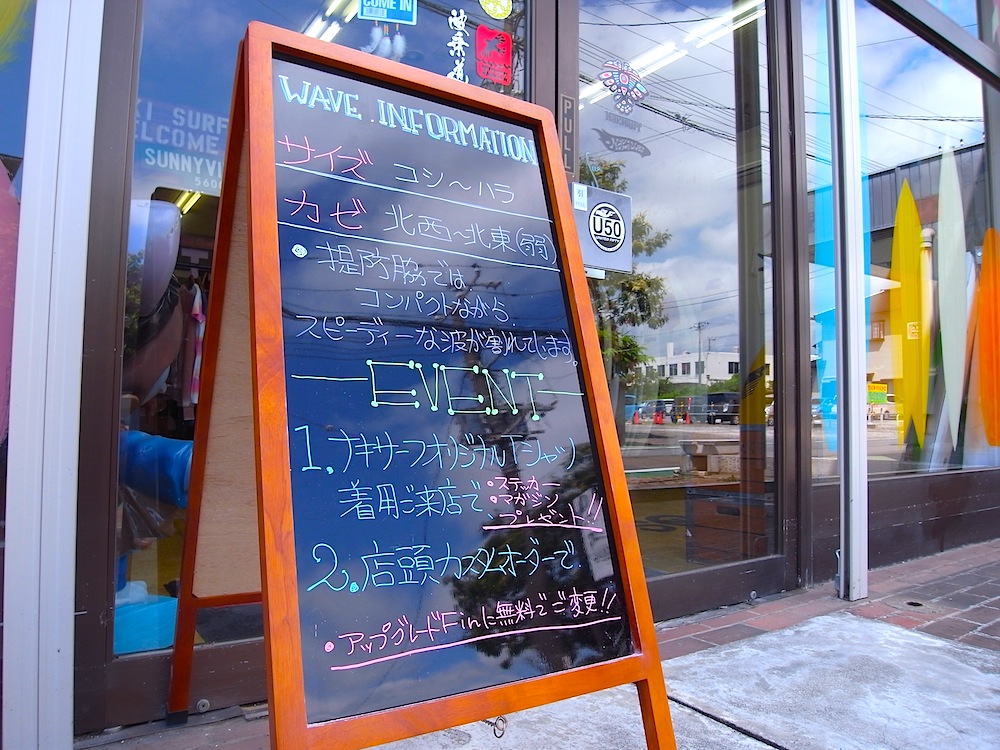 COME IN
波乗道
WAVE INFORMATION
サイズ コシ〜ハラ
カゼ 北西〜北東(弱)
•堤防脇では
コンパクトながら
スピーディーな波が割れてします。
EVENT
1. ナキサーフオリジナルTシャツ
着用ご来店で、
•ステッカー
•マガジン
プレゼント!!
2. 店頭カスタムオーダーで
•アップグレードFinに無料でご変更!!
PULL
引
U50
KI SURF
WELCOME
SUNNYVI